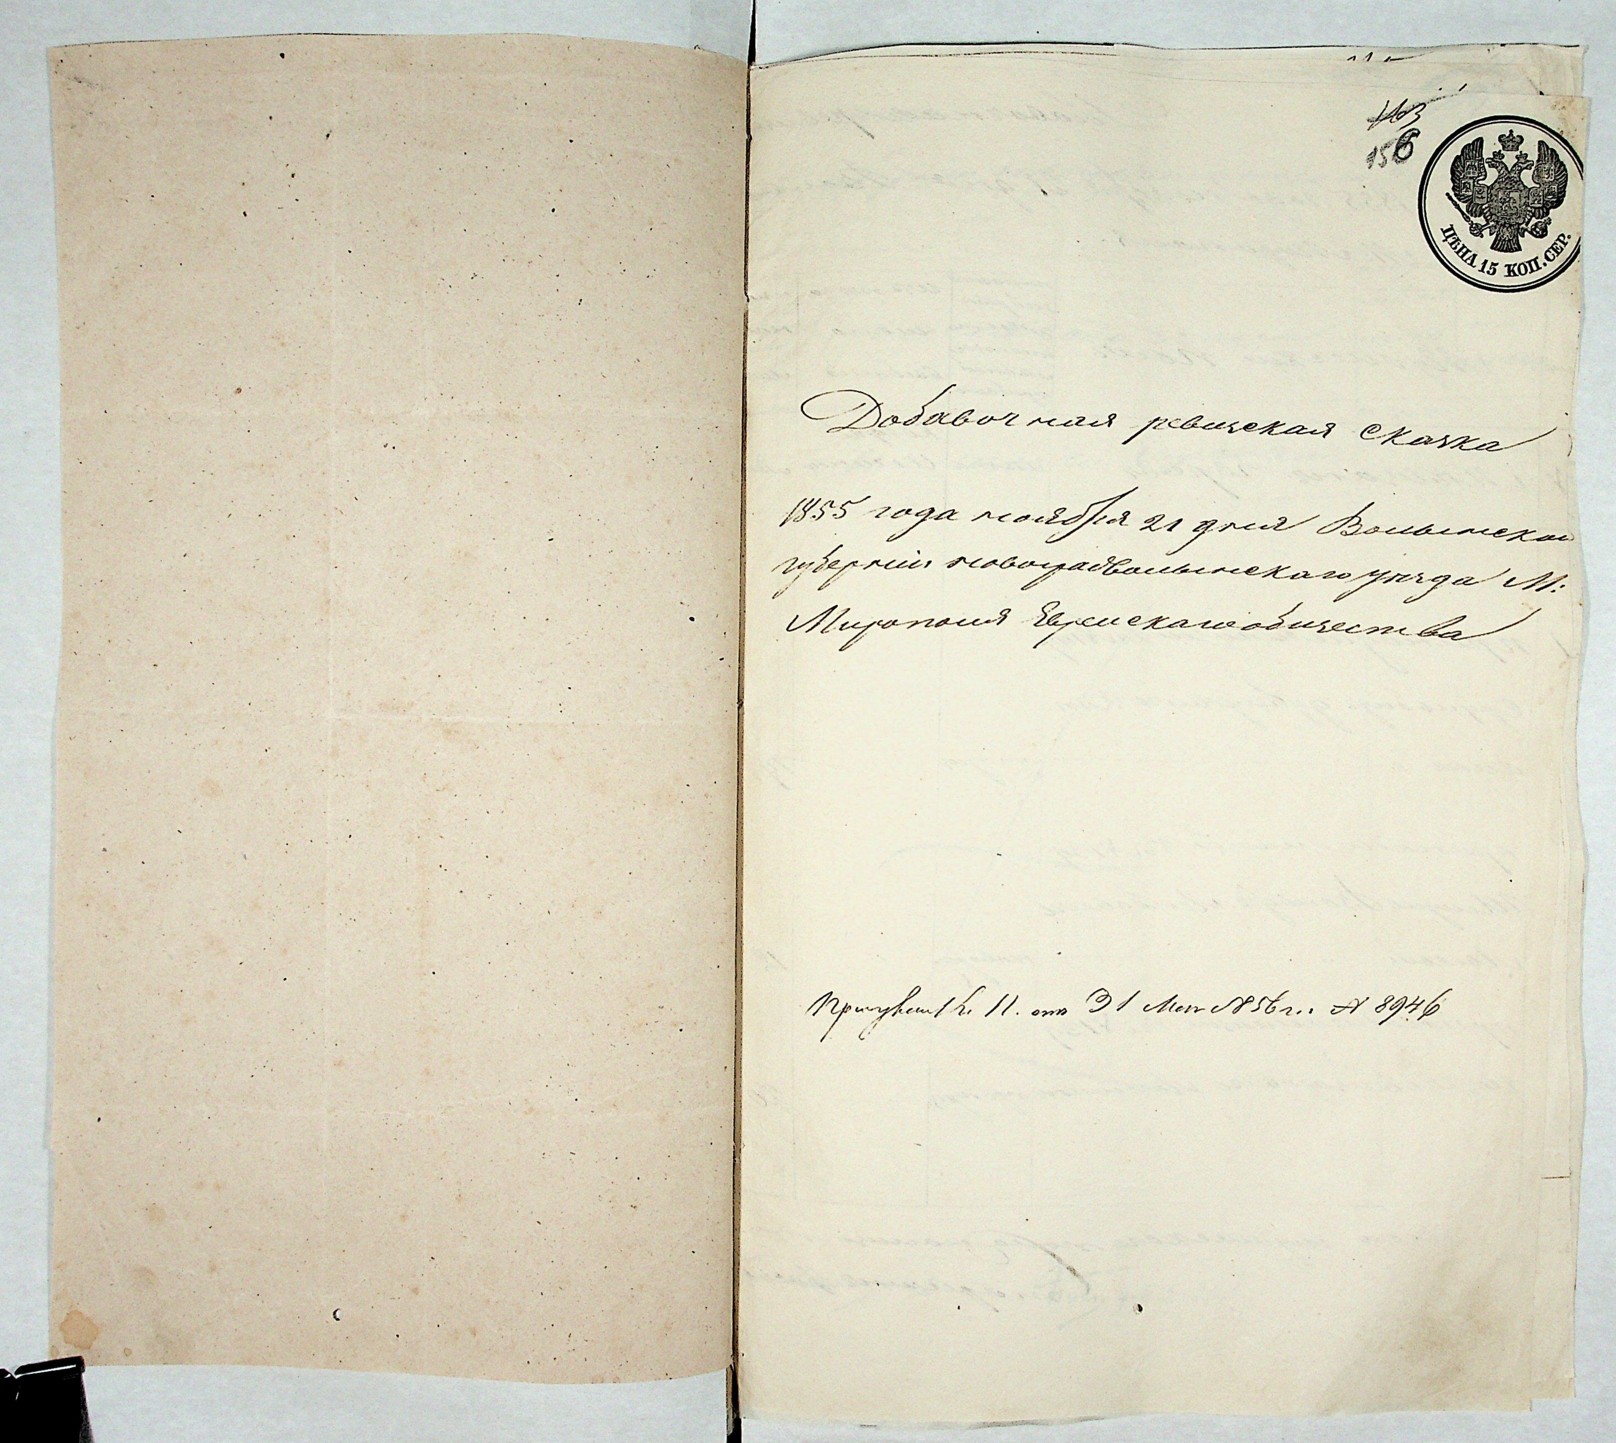 156
ЦѢНА 15 КОП. СЕР.
Добавочная ревизская сказка
1855 года ноября 21 дня Волынской
губернiи новоградволынскаго уѣзда М:
Мирополя Еврейскаго общества
П. отъ 31 8946